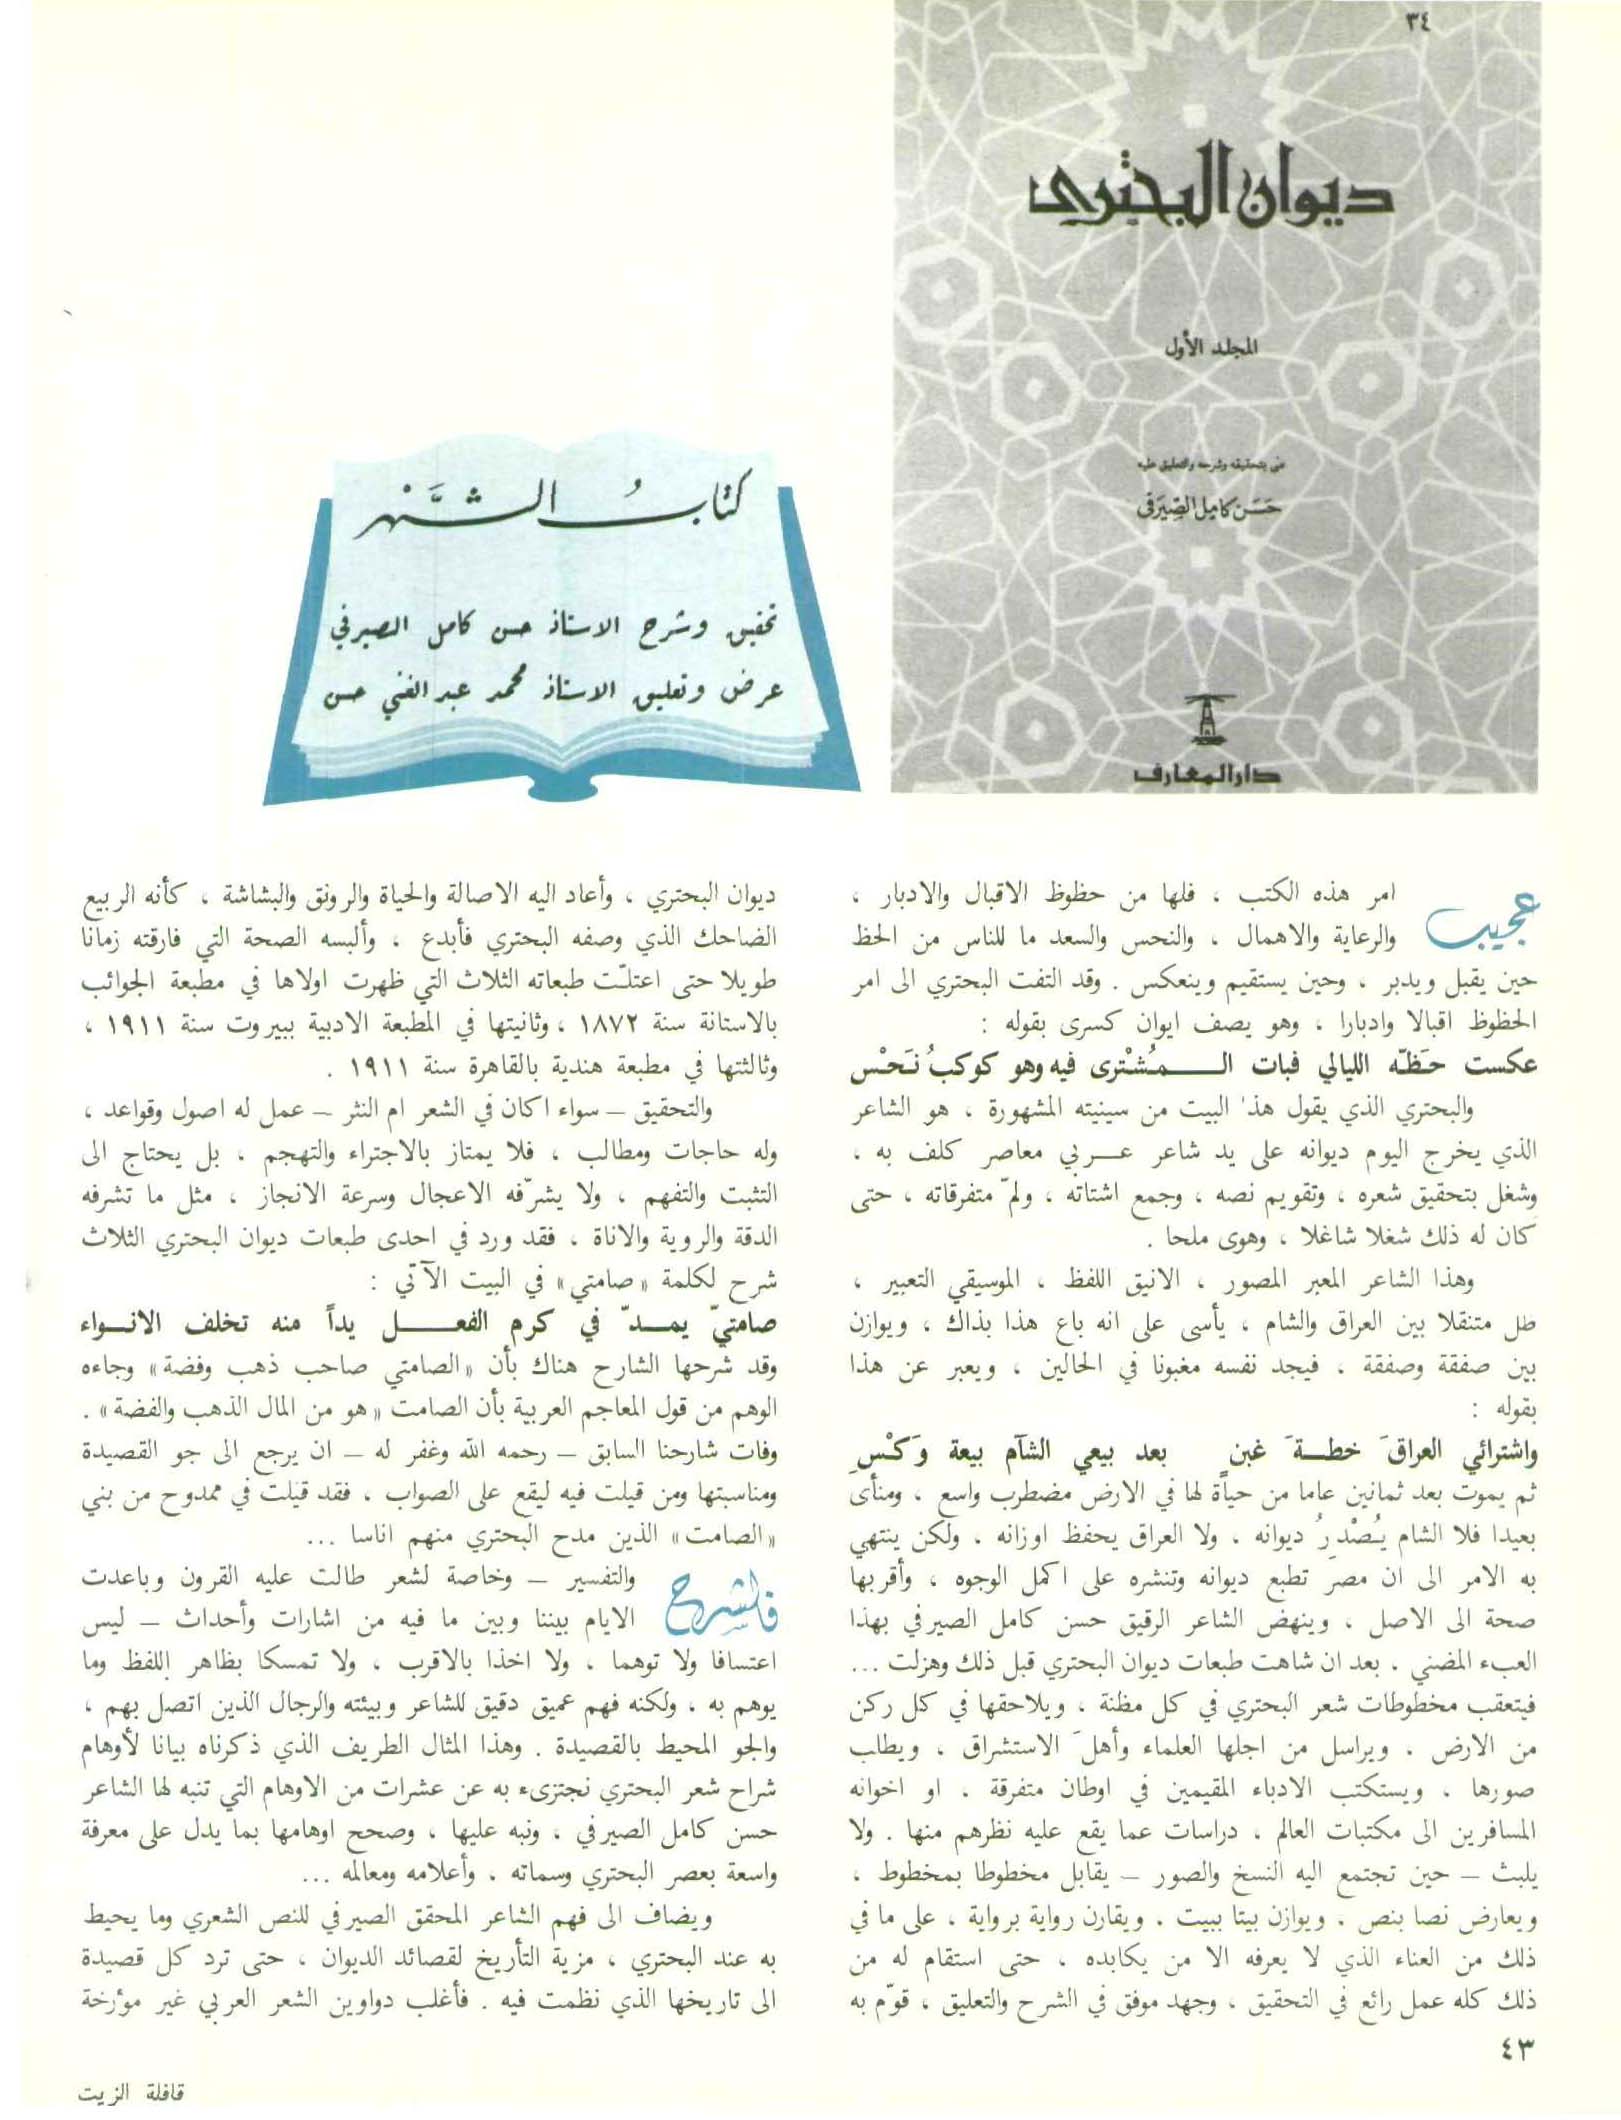 ٣٤
ديوان البحترى
المجلد الأول
عنى بتحقيقه وشرحه والتعليق عليه
حَسَن كامِل الصِّيرَفى
دار المعارف
كتابُ الشَّهر
تحقيق وشرح الاستاذ حسن كامل الصيرفي
عرض وتعليق الاستاذ محمد عبد الغني حسن
عجيب امر هذه الكتب ، فلها من حظوظ الاقبال والادبار ،
والرعاية والاهمال ، والنحس والسعد ما للناس من الحظ
حين يقبل ويدبر ، وحين يستقيم وينعكس . وقد التفت البحتري الى امر
الحظوظ اقبالا وادبارا ، وهو يصف ايوان كسرى بقوله :
عكست حَظّه الليالي فبات الـمُشْترى فيه وهو كوكبُ نَحْس
والبحتري الذي يقول هذا البيت من سينيته المشهورة ، هو الشاعر
الذي يخرج اليوم ديوانه على يد شاعر عـربي معاصر كلف به ،
وشغل بتحقيق شعره ، وتقويم نصه ، وجمع اشتاته ، ولمّ متفرقاته ، حتى
كان له ذلك شغلا شاغلا ، وهوى ملحا .
وهذا الشاعر المعبر المصور ، الانيق اللفظ ، الموسيقي التعبير ،
ظل متنقلا بين العراق والشام ، يأسى على انه باع هذا بذاك ، ويوازن
بين صفقة وصفقة ، فيجد نفسه مغبونا في الحالين ، ويعبر عن هذا
بقوله :
واشترائي العراقَ خطـةَ غبن بعد بيعي الشآم بيعة وَكْسِ
ثم يموت بعد ثمانين عاما من حياة لها في الارض مضطرب واسع ، ومنأى
بعيدا فلا الشام يُصْدِرُ ديوانه ، ولا العراق يحفظ اوزانه ، ولكن ينتهي
به الامر الى ان مصر تطبع ديوانه وتنشره على اكمل الوجوه ، وأقربها
صحة الى الاصل ، وينهض الشاعر الرقيق حسن كامل الصيرفي بهذا
العبء المضني ، بعد ان شاهت طبعات ديوان البحتري قبل ذلك وهزلت ...
فيتعقب مخطوطات شعر البحتري في كل مظنة ، ويلاحقها في كل ركن
من الارض ، ويراسل من اجلها العلماء وأهلَ الاستشراق ، ويطلب
صورها ، ويستكتب الادباء المقيمين في اوطان متفرقة ، او اخوانه
المسافرين الى مكتبات العالم ، دراسات عما يقع عليه نظرهم منها . ولا
يلبث – حين تجتمع اليه النسخ والصور – يقابل مخطوطا بمخطوط ،
ويعارض نصا بنص ، ويوازن بيتا ببيت ، ويقارن رواية برواية ، على ما في
ذلك من العناء الذي لا يعرفه الا من يكابده ، حتى استقام له من
ذلك كله عمل رائع في التحقيق ، وجهد موفق في الشرح والتعليق ، قوّم به
ديوان البحتري ، وأعاد اليه الاصالة والحياة والرونق والبشاشة ، كأنه الربيع
الضاحك الذي وصفه البحتري فأبدع ، وألبسه الصحة التي فارقته زمانا
طويلا حتى اعتلّت طبعاته الثلاث التي ظهرت اولاها في مطبعة الجوائب
بالاستانة سنة ١٨٧٢ ، وثانيتها في المطبعة الادبية ببيروت سنة ١٩١١ ،
وثالثتها في مطبعة هندية بالقاهرة سنة ١٩١١ .
والتحقيق – سواء اكان في الشعر ام النثر – عمل له اصول وقواعد ،
وله حاجات ومطالب ، فلا يمتاز بالاجتراء والتهجم ، بل يحتاج الى
التثبت والتفهم ، ولا يشرّفه الاعجال وسرعة الانجاز ، مثل ما تشرفه
الدقة والروية والاناة ، فقد ورد في احدى طبعات ديوان البحتري الثلاث
شرح لكلمة «صامتي» في البيت الآتي :
صامتيّ يمـدّ في كرم الفعـل يداً منه تخلف الانـواء
وقد شرحها الشارح هناك بأن «الصامتي صاحب ذهب وفضة» وجاءه
الوهم من قول المعاجم العربية بأن الصامت «هو من المال الذهب والفضة» .
وفات شارحنا السابق – رحمه الله وغفر له – ان يرجع الى جو القصيدة
ومناسبتها ومن قيلت فيه ليقع على الصواب ، فقد قيلت في ممدوح من بني
«الصامت» الذين مدح البحتري منهم اناسا ...
فالشرح والتفسير – وخاصة لشعر طالت عليه القرون وباعدت
الايام بيننا وبين ما فيه من اشارات وأحداث – ليس
اعتسافا ولا توهما ، ولا اخذا بالاقرب ، ولا تمسكا بظاهر اللفظ وما
يوهم به ، ولكنه فهم عميق دقيق للشاعر وبيئته والرجال الذين اتصل بهم ،
والجو المحيط بالقصيدة . وهذا المثال الطريف الذي ذكرناه بيانا لأوهام
شراح شعر البحتري نجتزىء به عن عشرات من الاوهام التي تنبه لها الشاعر
حسن كامل الصيرفي ، ونبه عليها ، وصحح اوهامها بما يدل على معرفة
واسعة بعصر البحتري وسماته ، وأعلامه ومعالمه ...
ويضاف الى فهم الشاعر المحقق الصيرفي للنص الشعري وما يحيط
به عند البحتري ، مزية التأريخ لقصائد الديوان ، حتى ترد كل قصيدة
الى تاريخها الذي نظمت فيه . فأغلب دواوين الشعر العربي غير مؤرخة
٤٣
قافلة الزيت